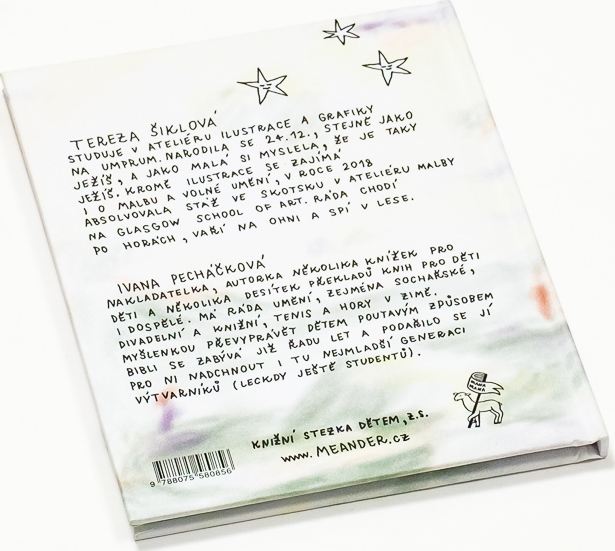 TEREZA ŠIKLOVÁ
STUDUJE V ATELIÉRU ILUSTRACE A GRAFIKY
NA UMPRUM. NARODILA SE 24.12., STEJNĚ JAKO
JEŽÍŠ, A JAKO MALÁ SI MYSLELA, ŽE JE TAKY
JEŽÍŠ. KROMĚ ILUSTRACE SE ZAJÍMÁ
I O MALBU A VOLNÉ UMĚNÍ, V ROCE 2018
ABSOLVOVALA STÁŽ VE SKOTSKU V ATELIÉRU MALBY
NA GLASGOW SCHOOL OF ART. RÁDA CHODÍ
PO HORÁCH, VAŘÍ NA OHNI A SPÍ V LESE.
IVANA PECHÁČKOVÁ
NAKLADATELKA, AUTORKA NĚKOLIKA KNÍŽEK PRO
DĚTI A NĚKOLIKA DESÍTEK PŘEKLADŮ KNIH PRO DĚTI
I DOSPĚLÉ. MÁ RÁDA UMĚNÍ, ZEJMÉNA SOCHAŘSKÉ,
DIVADELNÍ A KNIŽNÍ, TENIS A HORY V ZIMĚ.
MYŠLENKOU PŘEVYPRÁVĚT DĚTEM POUTAVÝM ZPŮSOBEM
BIBLI SE ZABÝVÁ JIŽ ŘADU LET A PODAŘILO SE JÍ
PRO NI NADCHNOUT I TU NEJMLADŠÍ GENERACI
VÝTVARNÍKŮ (LECKDY JEŠTĚ STUDENTŮ).
KNIŽNÍ STEZKA DĚTEM, Z.S.
www.MEANDER.CZ
9 788075 580856